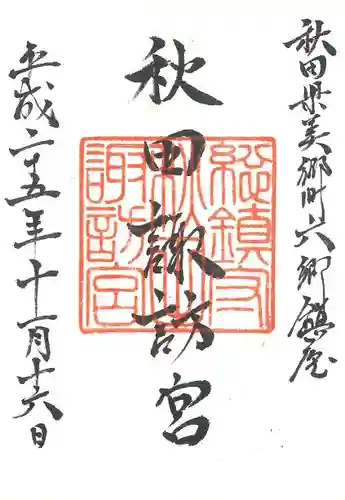 秋田県美郷町六郷鎮座
秋田諏訪宮
総鎮守
秋田
諏訪宮
平成二十五年十一月十六日